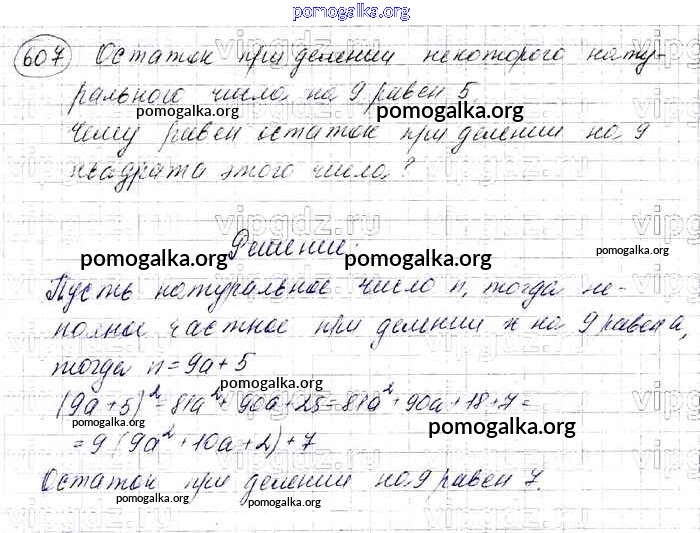 pomogalka.org
607 Остаток при делении некоторого нату-
рального числа на 9 равен 5
pomogalka.org pomogalka.org
Чему равен остаток при делении на 9
квадрата этого числа?
vipgdz.ru vipgdz.ru
Решение:
pomogalka.org pomogalka.org pomogalka.org
Пусть натуральное число n, тогда не-
полное частное при делении n на 9 равен a,
pomogalka.org
тогда n = 9a + 5
pomogalka.org
(9a + 5)² = 81a² + 90a + 25 = 81a² + 90a + 18 + 7 =
= 9 (9a² + 10a + 2) + 7
pomogalka.org
Остаток при делении на 9 равен 7.
pomogalka.org pomogalka.org